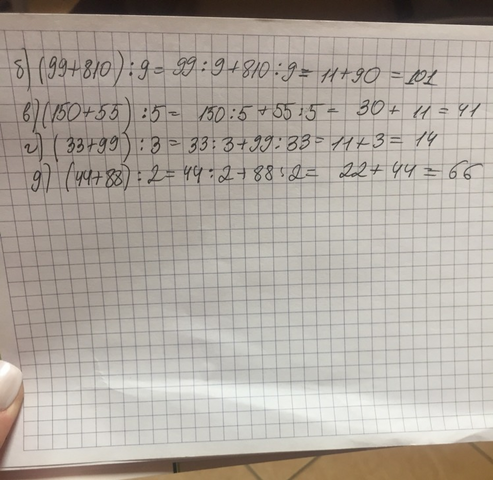 б) (99+810) : 9 = 99 : 9 + 810 : 9 = 11 + 90 = 101
в) (150+55) : 5 = 150 : 5 + 55 : 5 = 30 + 11 = 41
г) (33+99) : 3 = 33 : 3 + 99 : 33 = 11 + 3 = 14
д) (44+88) : 2 = 44 : 2 + 88 : 2 = 22 + 44 = 66